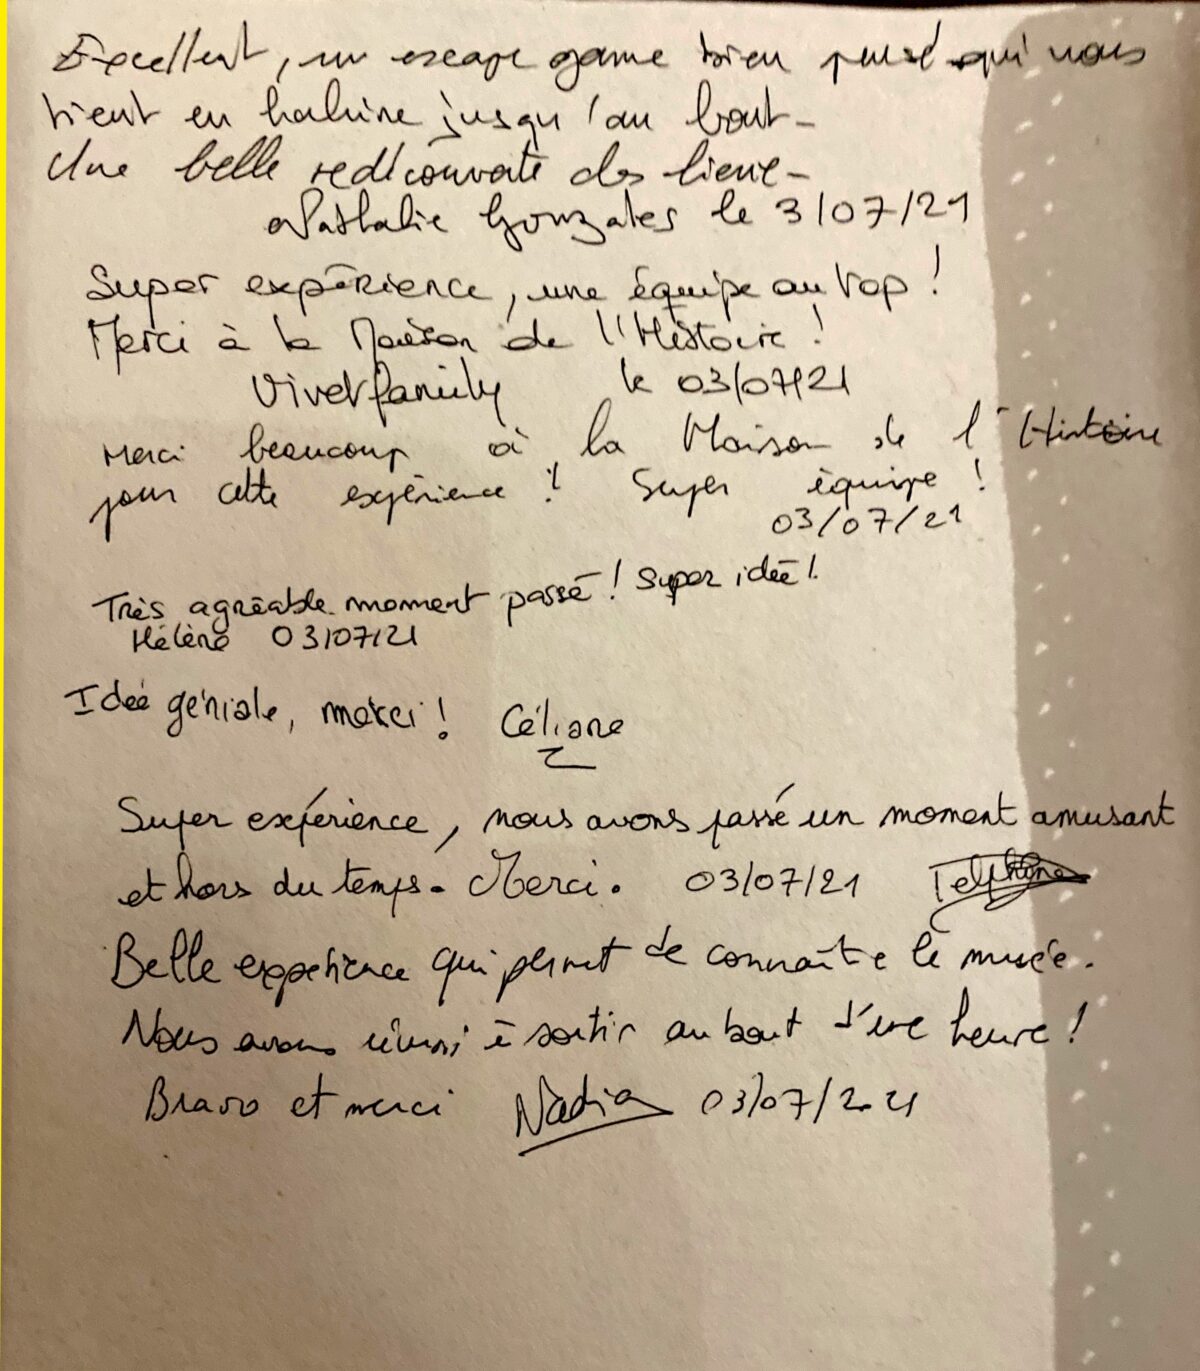 Excellent, un escape game bien pensé qui nous
tient en haleine jusqu'au bout -
Une belle redécouverte des lieux -
Nathalie Gonzales le 3/07/21
Super expérience, une équipe au top !
Merci à la Maison de l'Histoire !
Vivet family le 03/07/21
Merci beaucoup à la Maison de l'Histoire
pour cette expérience ! Super équipe !
03/07/21
Très agréable moment passé ! Super idée !
Hélène 03/07/21
Idée géniale, merci ! Céliane
Super expérience, nous avons passé un moment amusant
et hors du temps. Merci. 03/07/21
Belle expérience qui permet de connaître le musée.
Nous avons réussi à sortir au bout d'une heure !
Bravo et merci Nadia 03/07/2021